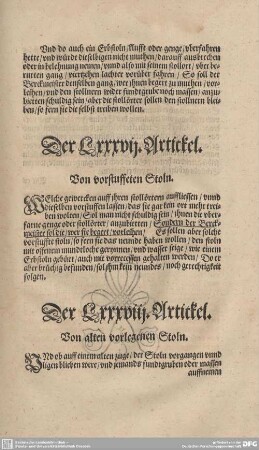 Vnd do auch ein Erbstoln / klufft oder genge / vberfahren
hette / vnd würde dieselbigen nicht muthen / darauff ausbrechen
oder in belehnung nemen / vnnd also mit seinem stollort / vber be-
rurten gang / viertzehen lachter vorüber fahren / So soll der
Berckmeister denselben gang / wer ihnen begert zu muthen / vor-
leihen / vnd den stollnern wider fundtgrube noch massen / anzu-
biethen schuldig sein / aber die stollörter sollen den stollnern blei-
ben / so fern sie die selbst treiben wollen.
Der Lxxxvij. Artickel.
Von vorstuffeten Stoln.
WElche gewercken auff ihren stollörtern aufflessen / vnnd
dieselben vorstuffen lassen / das sie gar kein ort mehr trei-
ben wolten / Sol man nicht schuldig sein / ihnen die vber-
farne genge oder stollörter / anzubietten / Sondern der Berck-
meister sol die / wer sie begert / vorleihen / Es sollen aber solche
vorstuffte stoln / so fern sie das neunde haben wollen / den stoln
mit offenem mundtloche / gerynnen / vnd wasser seige / wie einem
Erbstoln gebürt / auch mit vorrecessen gehalten werden / Do er
aber brüchig befunden / sol ihm kein neundes / noch gerechtigkeit
folgen.
Der Lxxxviij. Artickel.
Von alten vorlegenen Stoln.
VNd ob auff einem alten zuge / der Stoln vorgangen vnnd
ligen blieben were / vnd jemands fundtgruben oder massen
auffnemen